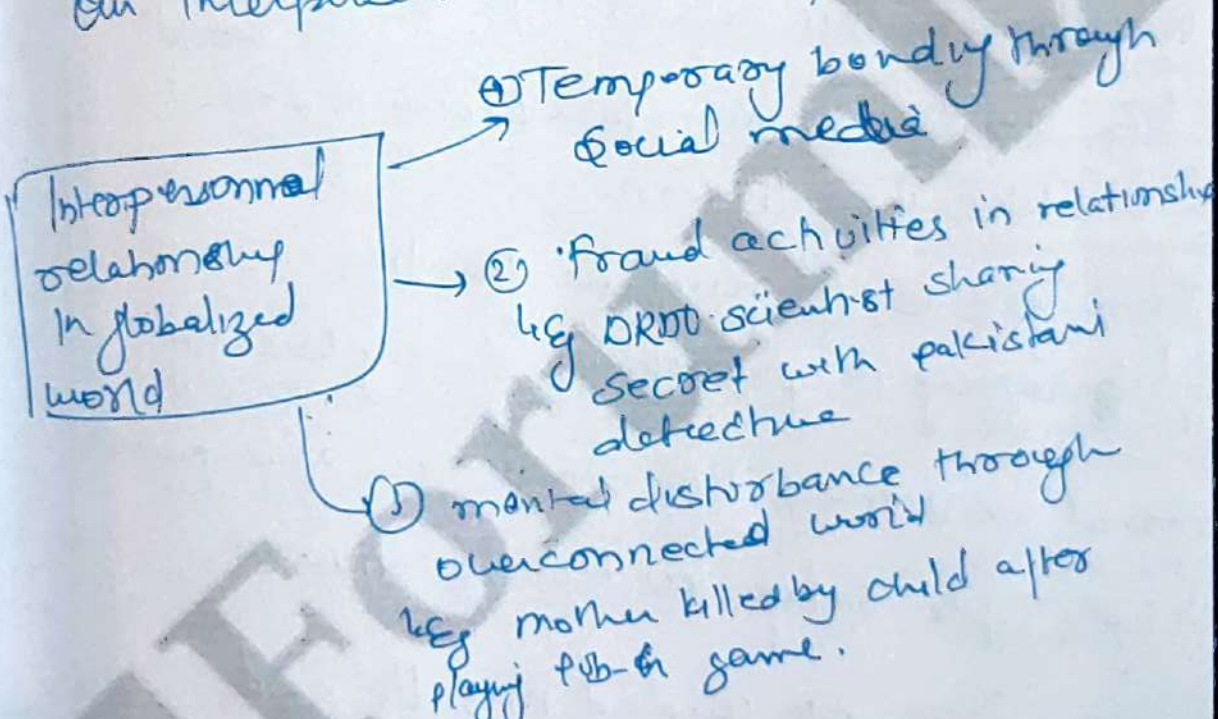 our
Interpersonnal
relationship
In globalized
world
① Temporary bonding through
Social media
② fraud activities in relationship
↳ Eg DRDO scientist sharing
secret with pakistani
detective
③ mental disturbance through
overconnected world
↳ Eg mother killed by child after
playing PUB-G game.
ForumI